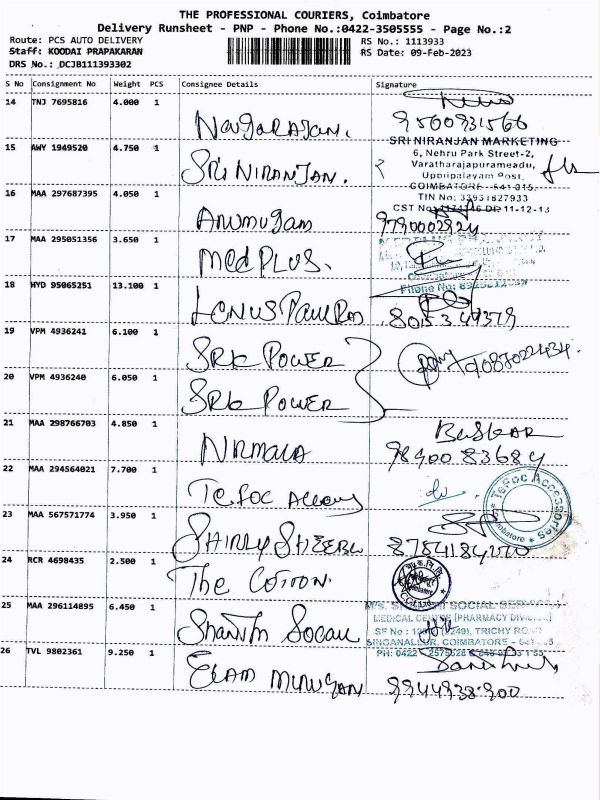 THE PROFESSIONAL COURIERS, Coimbatore
Delivery Runsheet - PNP - Phone No.:0422-3505555 - Page No.:2
Route: PCS AUTO DELIVERY RS No.: 1113933
Staff: KOODAI PRAPAKARAN RS Date: 09-Feb-2023
DRS No.: DCJB111393302
S No Consignment No Weight PCS Consignee Details Signature
14 TNJ 7695816 4.000 1
Nagarajan. 9500931566
15 AWY 1949520 4.750 1 SRI NIRANJAN MARKETING
6, Nehru Park Street-2,
SRI NIRANJAN. Varatharajapurameadu,
Uppilipalayam Post,
COIMBATORE - 641 015.
16 MAA 297687395 4.050 1 TIN No: 33931827933
CST No: DP 11-12-13
Arumugam 9790002924
17 MAA 295051356 3.650 1
MedPLUS.
Phone No:
18 HYD 95065251 13.100 1
8015347379
19 VPM 4936241 6.100 1
SRK POWER
20 VPM 4936240 6.050 1
SRK POWER
21 MAA 298766703 4.850 1 BASKAR
NIRMALA 98400 83684
22 MAA 294564021 7.700 1 TeFoc Accessories
TeFoc
23 MAA 567571774 3.950 1
SHIRLY SHEEBA 8754184270
24 RCR 4698435 2.500 1
The COTTON.
25 MAA 296114895 6.450 1 M/S. SOCIAL SERVICE
MEDICAL CENTRE (PHARMACY DIVISION)
SF No : TRICHY ROAD
Shanthi Social SINGANALLUR, COIMBATORE -
26 TVL 9802361 9.250 1 PH: 0422
ELAM MURUGAN 9944938900